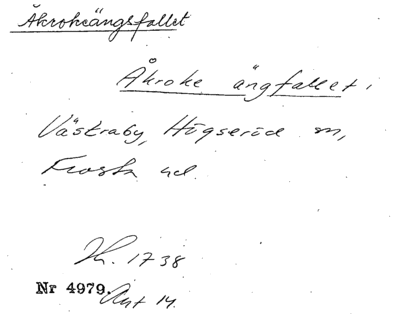 Åkrokeängsfallet
Åkroke ängfallet,
Västraby, Högseröd sn,
Frosta hd.
Kh. 1738
Nr 4979. Avt 14.